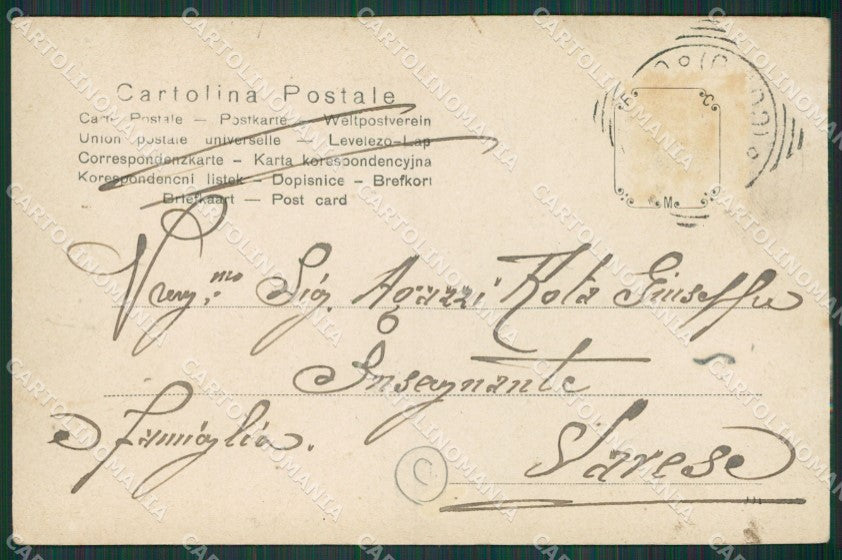 Cartolina Postale
Carte Postale – Postkarte – Weltpostverein
Union postale universelle – Levelezö-Lap
Correspondenzkarte – Karta korespondencyjna
Korespondencni listek – Dopisnice – Brefkort
Briefkaart – Post card
F C
M
Sig. Agazzi Rota Giuseppe
Insegnante
Famiglia.
Varese
C
CARTOLINOMANIA